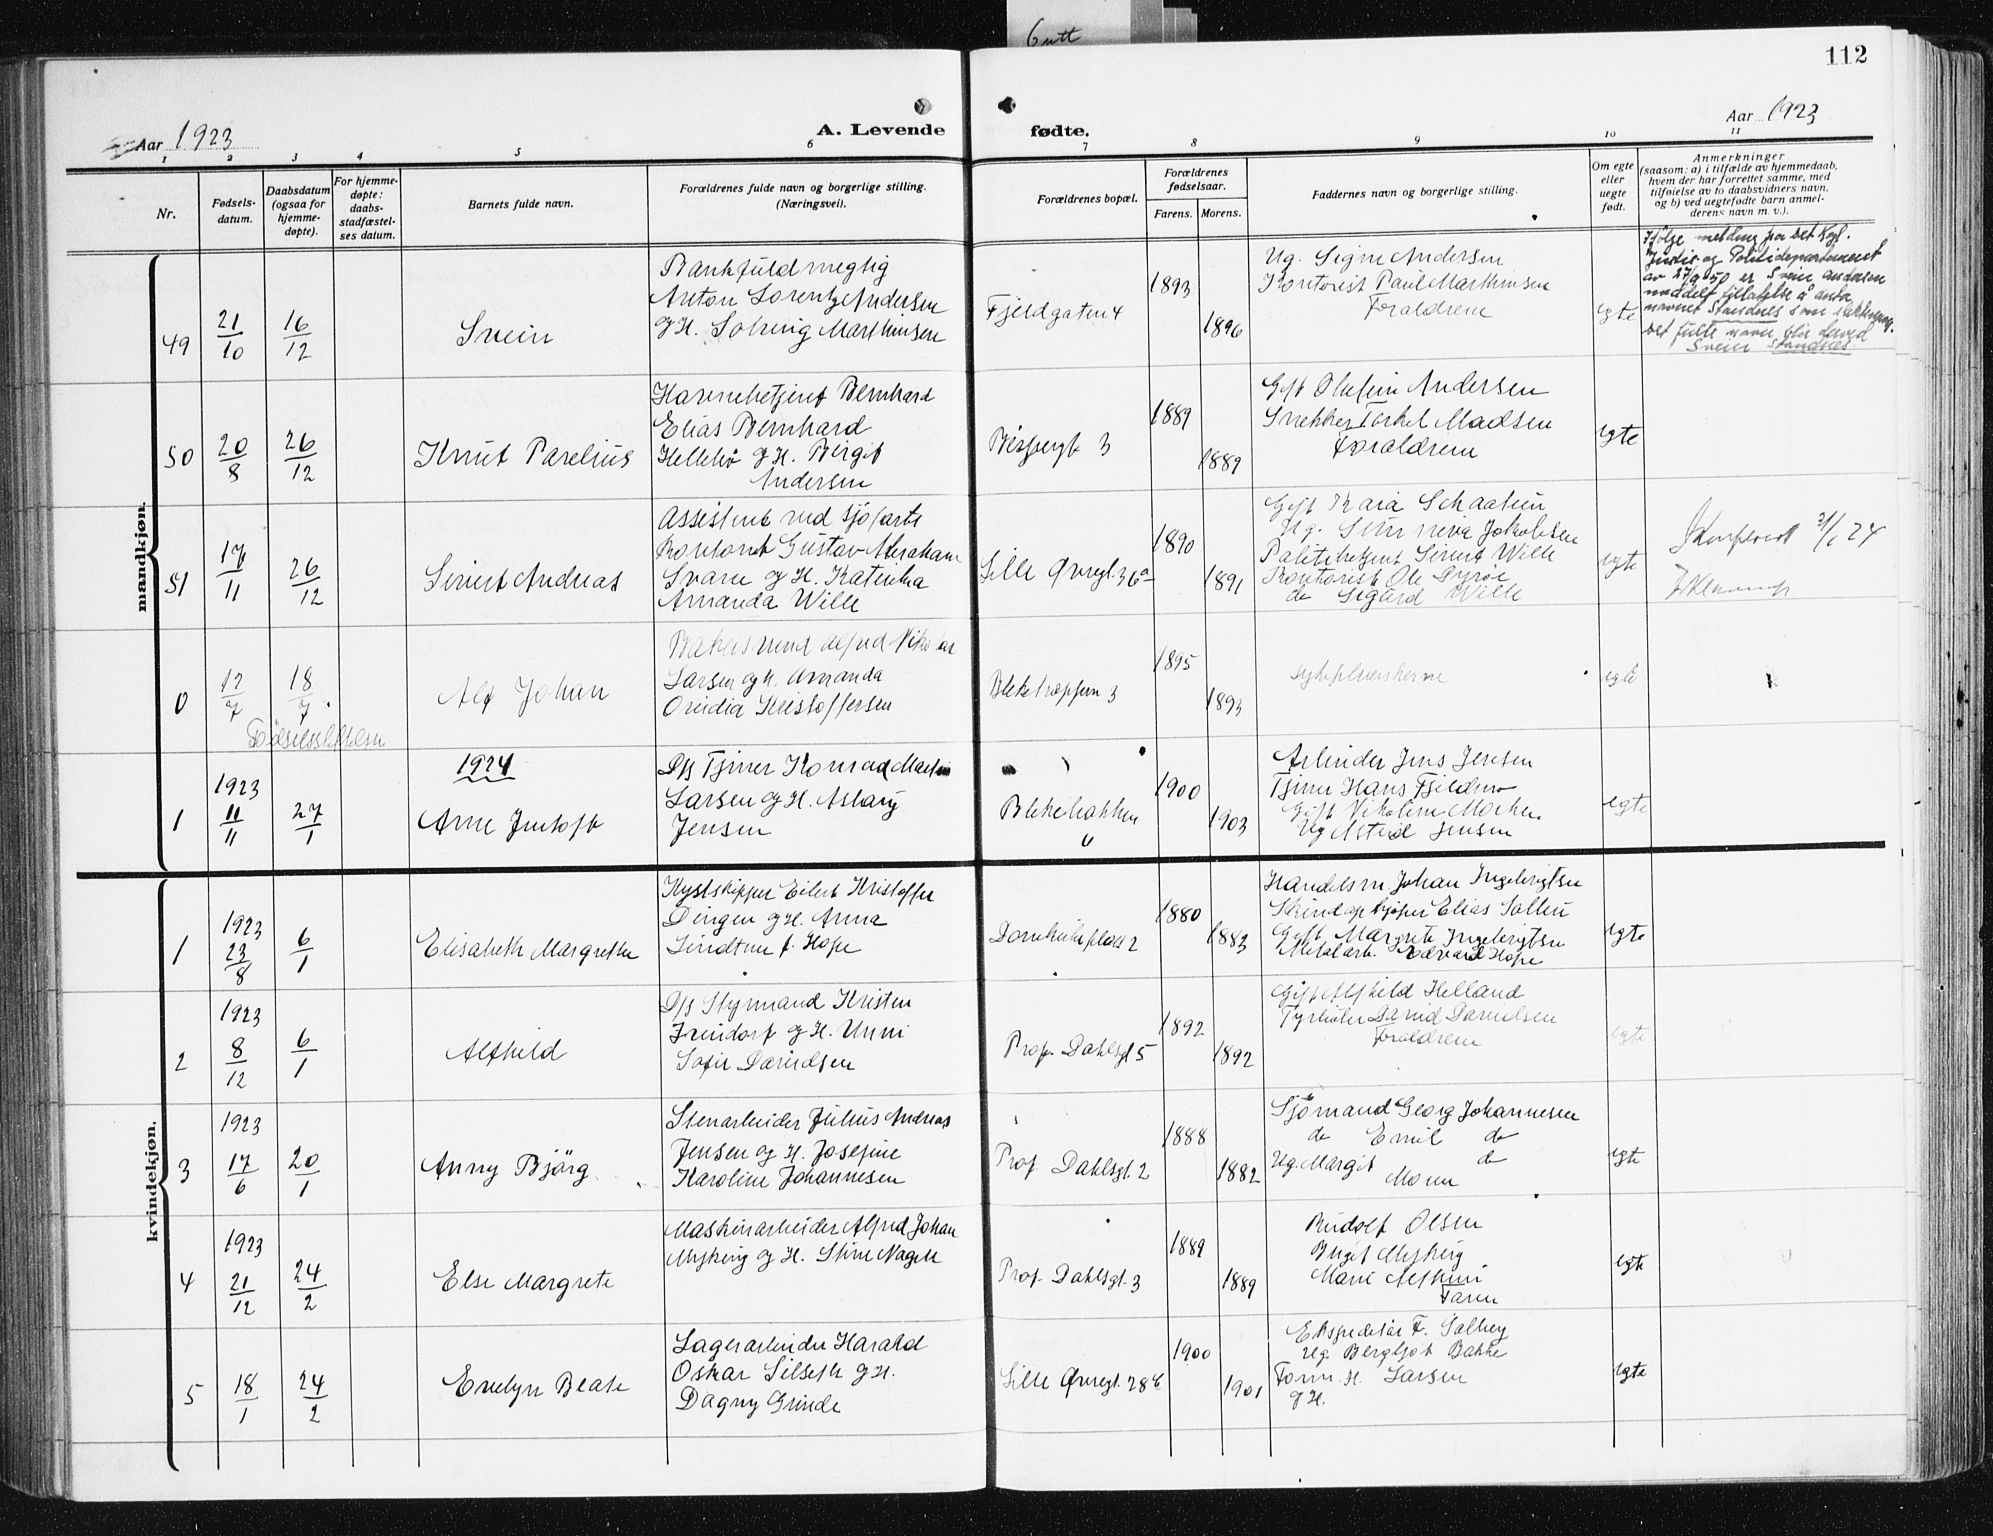 6 utt
112
Aar 1923
A. Levende
fødte.
Aar 1923
1 2 3 4 5 6 7 8 9 10 11
Nr.
Fødsels-
datum.
Daabsdatum
(ogsaa for
hjemme-
døpte).
For hjemme-
døpte:
daabs-
stadfæstel-
ses datum.
Barnets fulde navn.
Forældrenes fulde navn og borgerlige stilling.
(Næringsvei).
Forældrenes bopæl.
Forældrenes
fødselsaar.
Farens. Morens.
Faddernes navn og borgerlige stilling.
Om egte
eller
uegte
født.
Anmerkninger
(saasom: a) i tilfælde av hjemmedaab,
hvem der har forrettet samme, med
tilføielse av to daabsvidners navn,
og b) ved uegtefødte barn anmel-
derens navn m. v.).
mandkjøn.
49
21/10
16/12
Svein
Bankfuldmegtig
Anton Lorentz Andersen
og H. Solveig Marthinsen
Fjeldgaten 4
1893
1896
Ug. Signe Andersen
Kontorist Paul Marthinsen
Forældrene
egte
Ifølge melding fra det Kgl.
Justis og Politidepartement
av 27/9 50 er Svein Andersen
meddelt tillatelse å anta
navnet Standnes som slektsnavn.
Det fulle navn blir derved
Svein Standnes
50
20/8
26/12
Knut Parelius
Havnebetjent Bernhard
Elias Bernhard
Hellebø og H. Birgit
Andersen
Bispengt 3
1889
1889
Gift Olufine Andersen
Snekker Torkel Madsen
Forældrene
egte
51
17/11
26/12
Sivert Andreas
Assistent ved sjøfarts
kontoret Gustav Abraham
Svane og H. Katinka
Amanda Wille
Lille Øvregt. 36a
1890
1891
Gift Kaia Schaatun
Ug. Sunniva Jakobsen
Politibetjent Sivert Wille
Kontorist Ole Syrøe
do Sigurd Wille
egte
Konferert 31/1 24
0
17/7
18/7
Fødselsstiftelsen
Alf Johan
Bakersvend Alfred Nikolai
Larsen og H. Amanda
Ovidia Kristoffersen
Bleketrappen 3
1895
1893
sykepleierskerne
egte
1924
1
1923
11/11
27/1
Arne Justoft
D/s Tjener Konrad Martin
Larsen og H. Aslaug
Jensen
Blekebakken
"
1900
1903
Arbeider Jens Jensen
Tjener Hans Fjeldmo
Gift Nikoline Morken
Ug Astrid Jensen
egte
kvindekjøn.
1
1923
23/8
6/1
Elisabeth Margrethe
Kystskipper Eilert Kristoffer
Dingen og H. Anna
Lindtner f. Hope
Domkirkeplass 2
1880
1883
Handelsm. Johan Ingebrigtsen
Skindopkjøper Elias Solheim
Gift Margrete Ingebrigtsen
Metalarb. Edvard Hope
egte
2
1923
8/12
6/1
Alfhild
D/s Styrmand Kristen
Juindorf og H. Unni
Sofie Davidsen
Prof. Dahlsgt 5
1892
1892
Gift Alfhild Helland
Fyrbøter David Danielsen
Forældrene
egte
3
1923
17/6
20/1
Anny Bjørg
Stenarbeider Julius Andreas
Jensen og H. Josefine
Karoline Johannesen
Prof Dahlsgt. 2
1888
1882
Sjømand Georg Johannesen
do Emil do
Ug. Margit do
Moren
egte
4
1923
21/12
24/2
Else Margrete
Maskinarbeider Alfred Johan
Myking og H. Stine Nagell
Prof. Dahlsgt. 3
1889
1889
Rudolf Olsen
Birgit Myking
Marie
Faren
egte
5
18/1
24/2
Evelyn Beate
Lagerarbeider Harald
Oskar Silseth og H.
Dagny Grinde
Lille Øvregt. 28b
1900
1901
Ekspeditør F. Solberg
Ug. Bergljot Bakke
Form. H. Larsen
og H.
egte